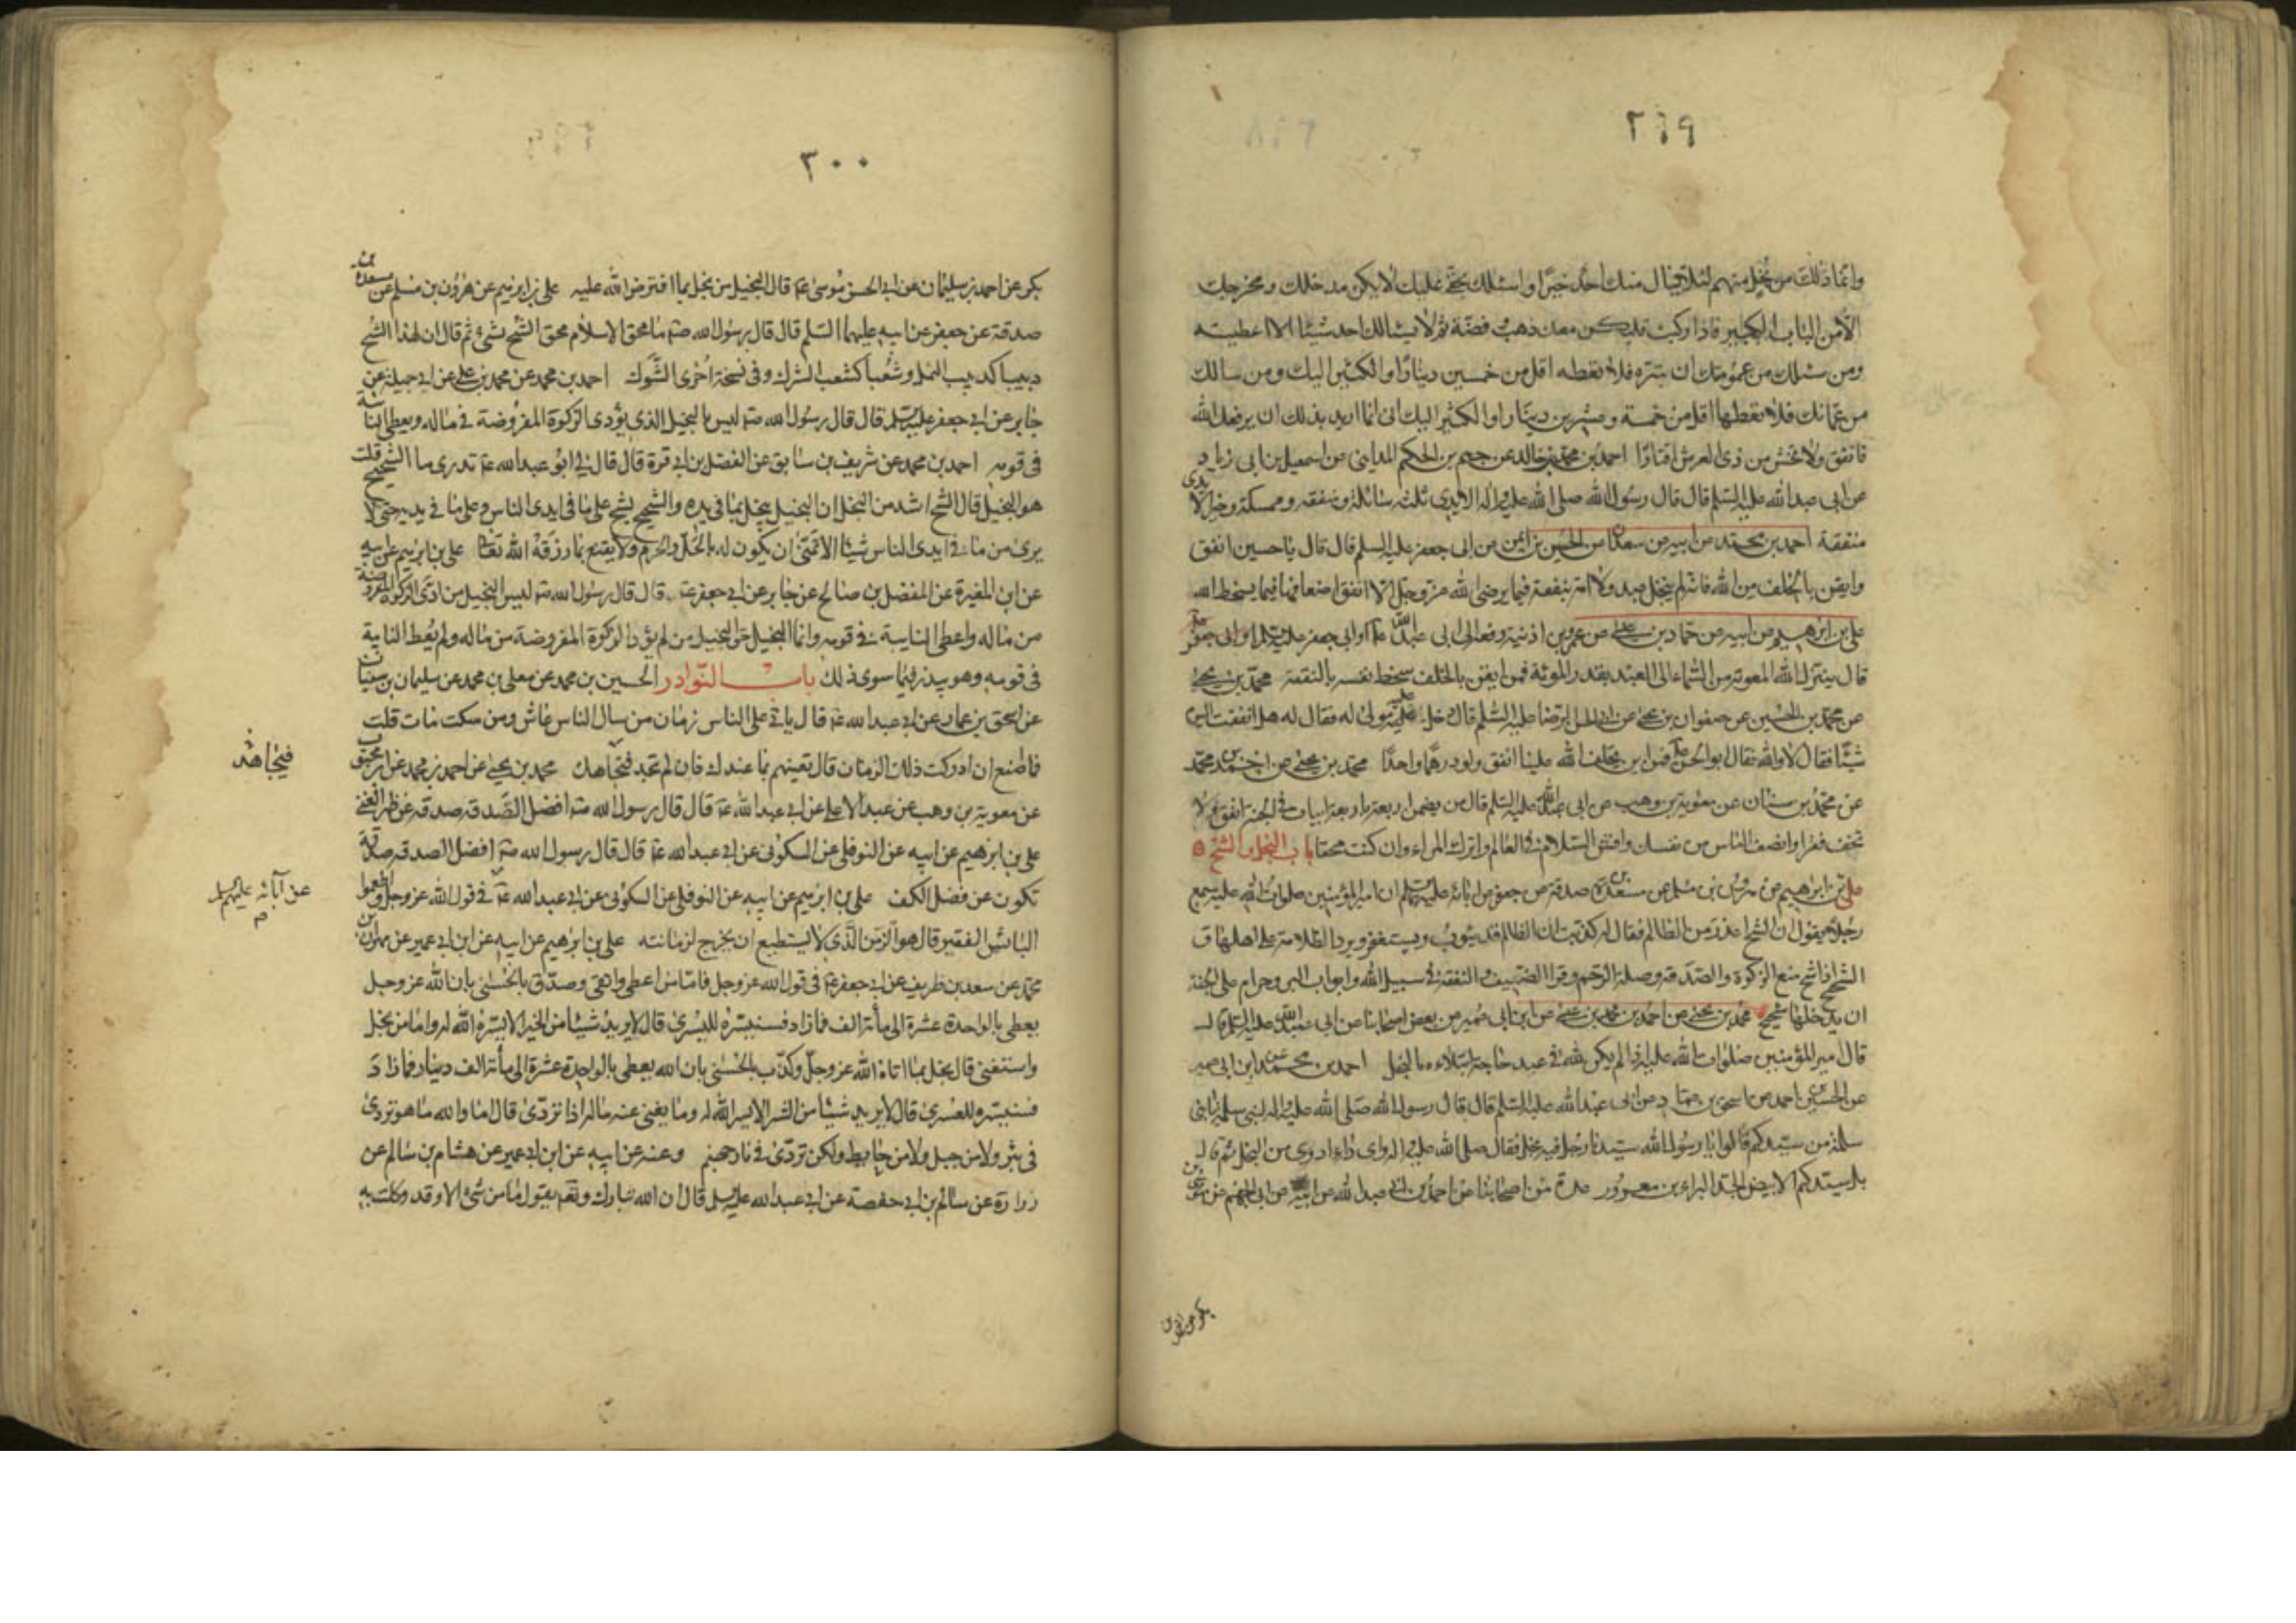 ٢٩٩
وانما ذلك من بخل منهم لئلا ينال منك احد خيرا واسئلك بحقى عليك لا يكن مدخلك ومخرجك
الا من الباب الكبير فاذا ركبت فليكن معك ذهب وفضة ثم لا يسالك احد شيئا الا اعطيته
ومن سئلك من عمومتك ان تبره فلا تعطه اقل من خمسين دينارا والكثير اليك ومن سالك
من عماتك فلا تعطها اقل من خمسة وعشرين دينارا والكثير اليك انى انما اريد بذلك ان يرفعك الله
فانفق ولا تخش من ذى العرش اقتارا احمد بن محمد بن خالد عن جهم بن الحكم المداينى عن اسمعيل بن ابى زياد
عن ابى عبد الله عليه السلم قال قال رسول الله صلى الله عليه واله الايدى ثلثة سائلة ومنفقة وممسكة وخير الا يدى
منفقة احمد بن محمد عن ابيه عن سعدان عن الحسين بن ايمن عن ابى جعفر عليه السلم قال قال يا حسين انفق
وايقن بالخلف من الله فانه لم يبخل عبد ولا امة بنفقة فيما يرضى الله عز وجل الا انفق اضعافها فيما يسخط الله
على بن ابرهيم عن ابيه عن حماد بن عن عمر بن اذنية رفعه الى ابى عبد الله او ابى جعفر
قال ينزل الله المعونة من السماء الى العبد بقدر المؤنة فمن ايقن بالخلف سخط نفسه بالنفقة محمد بن يحيى
عن محمد بن الحسين عن صفوان بن يحيى عن ابى الحسن الرضا عليه السلم قال دخل عليه مولى له فقال له هل انفقت اليوم
شيئا فقال لا والله فقال ابو الحسن فمن اين يخلف الله علينا انفق ولو درهما واحدا محمد بن يحيى عن احمد بن محمد
عن محمد بن سنان عن معوية بن وهب عن ابى عبد الله عليه السلم قال من يضمن اربعة باربعة ابيات فى الجنة انفق ولا
تخف فقرا وانصف الناس من نفسك وافش السلام فى العالم واترك المراء وان كنت محقا باب البخل والشح
على بن ابراهيم عن هرون بن مسلم عن مسعدة بن صدقة عن جعفر عن ابائه عليهم السلم ان امير المؤمنين صلوات الله عليه سمع
رجلا يقول ان الشحيح اعذر من الظالم فقال له كذبت ان الظالم قد يتوب ويستغفر ويرد الظلامة على اهلها و
الشحيح اذا شح منع الزكوة والصدقة وصلة الرحم وقرى الضيف والنفقة فى سبيل الله وابواب البر وحرام على الجنة
ان يدخلها شحيح محمد بن يحيى عن احمد بن محمد بن عيسى عن ابن ابى عمير عن بعض اصحابنا عن ابى عبد الله عليه السلم قال
قال امير المؤمنين صلوات الله عليه اذا لم يكن لله فى عبد حاجة ابتلاه بالبخل احمد بن محمد عن ابن ابى عمير
عن الحسين بن احمد عن اسحق بن عمار عن ابى عبد الله عليه السلم قال قال رسول الله صلى الله عليه واله لبنى سلمة يا بنى
سلمة من سيدكم قالوا يا رسول الله سيدنا رجل فيه بخل فقال صلى الله عليه واله واى داء ادوى من البخل ثم قال
بل سيدكم الابيض الجسد البراء بن معرور عدة من اصحابنا عن احمد بن ابى عبد الله عن ابيه عن ابى الجهم عن موسى بن
بكر عن احمد
٣٠٠
بكر عن احمد بن سليمان عن ابى الحسن موسى ع قال البخيل من بخل بما افترض الله عليه على بن ابرهيم عن هرون بن مسلم عن مسعدة بن
صدقة عن جعفر عن ابيه عليهما السلم قال قال رسول الله ص ما محق الاسلام محق الشح شىء ثم قال ان لهذا الشح
دبيبا كدبيب النمل وشعبا كشعب الشرك وفى نسخة اخرى الشوك احمد بن محمد عن محمد بن على عن ابى جميلة عن
جابر عن ابى جعفر عليه السلم قال قال رسول الله ص ليس بالبخيل الذى يؤدى الزكوة المفروضة فى ماله ويعطى النائبة
فى قومه احمد بن محمد عن شريف بن سابق عن الفضل بن ابى قرة قال قال لى ابو عبد الله ع تدرى ما الشحيح قلت
هو البخيل قال الشح اشد من البخل ان البخيل يبخل بما فى يده والشحيح يشح على ما فى ايدى الناس وعلى ما فى يديه حتى لا
يرى من ما فى ايدى الناس شيئا الا تمنى ان يكون له بالحل والحرم ولا يقنع بما رزقه الله تعا على بن ابرهيم عن ابيه
عن ابن المغيرة عن المفضل بن صالح عن جابر عن ابى جعفر ع قال قال رسول الله ص ليس البخيل من ادى الزكوة المفروضة
من ماله واعطى النايبة فى قومه وانما البخيل حق البخيل من لم يؤد الزكوة المفروضة من ماله ولم يعط النايبة
فى قومه وهو يبذر فيما سوى ذلك باب النوادر الحسين بن محمد عن معلى بن محمد عن سليمان بن سفيان
عن اسحق بن عمار عن ابى عبد الله ع قال ياتى على الناس زمان من سال الناس عاش ومن سكت مات قلت
فما صنع ان ادركت ذلك الزمان قال تعينهم بما عندك فان لم تجد فتجاهد محمد بن يحيى عن احمد بن محمد عن ابن محبوب
عن معوية بن وهب عن عبد الاعلى عن ابى عبد الله ع قال قال رسول الله ص افضل الصدقة صدقة عن ظهر الغنى
على بن ابرهيم عن ابيه عن النوفلى عن السكونى عن ابى عبد الله ع قال قال رسول الله ص افضل الصدقة صدقة
تكون عن فضل الكف على بن ابرهيم عن ابيه عن النوفلى عن السكونى عن ابى عبد الله ع فى قول الله عز وجل واطعموا
البائس الفقير قال هو الزمن الذى لا يستطيع ان يخرج لزمانته على بن ابرهيم عن ابيه عن ابن ابى عمير عن مهران بن
محمد عن سعد بن طريف عن ابى جعفر ع فى قول الله عز وجل فاما من اعطى واتقى وصدق بالحسنى بان الله عز وجل
يعطى بالواحدة عشرة الى مأئة الف فما زاد فسنيسره لليسرى قال لا يريد شيئا من الخير الا يسره الله له واما من بخل
واستغنى قال بخل بما اتاه الله عز وجل وكذب بالحسنى بان الله يعطى بالواحدة عشرة الى مأئة الف دينار فما زاد
فسنيسره للعسرى قال لا يريد شيئا من الشر الا يسر الله له وما يغنى عنه ماله اذا تردى قال اما والله ما هو تردى
فى بئر ولا من جبل ولا من حايط ولكن تردى فى نار جهنم وعنه عن ابيه عن ابن ابى عمير عن هشام بن سالم عن
زرارة عن سالم بن ابى حفصة عن ابى عبد الله عليه السلم قال ان الله تبارك وتعا يقول ما من شىء الا وقد وكلت به
فتجاهد
عن آبائه عليهم السلم